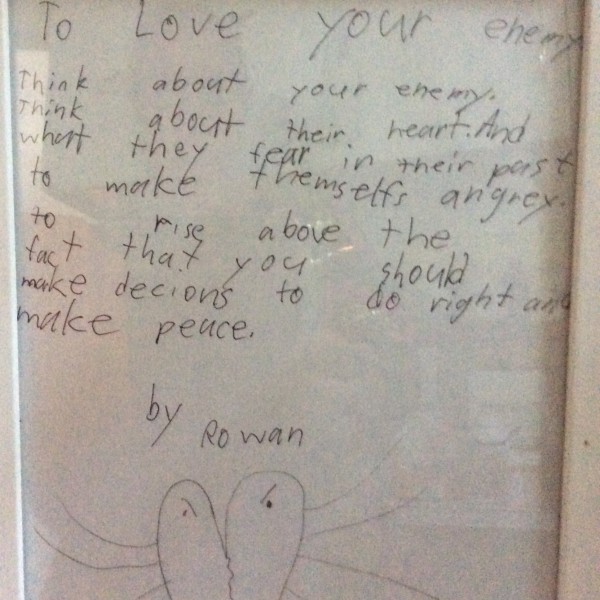 To Love your enemy
Think about your enemy.
Think about their heart. And
what they fear in their past
to make themselfs angrey.
to rise above the
fact that you should
make decions to do right and
make peace.
by Rowan